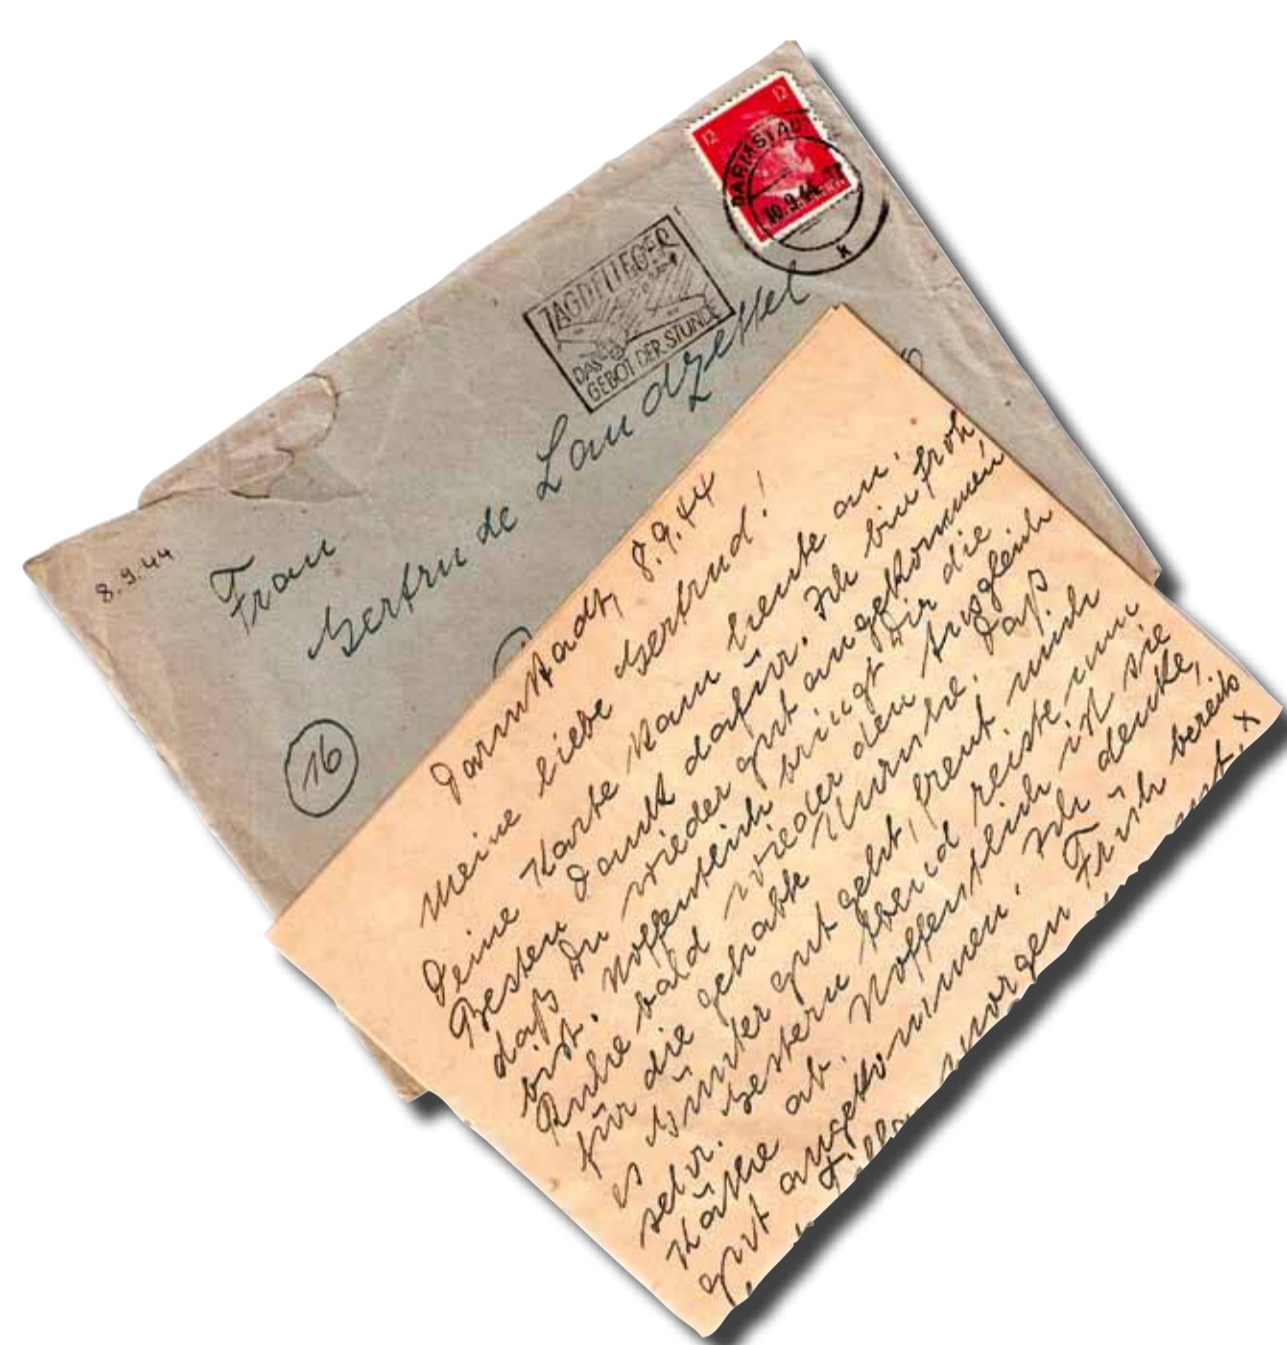 12
12
DARMSTADT
10.9.44
k
JAGDFLIEGER
DAS
GEBOT DER STUNDE
8.9.44
Frau
Gertrude Landzettel
16
Darmstadt, 8.9.44
Meine liebe Gertrud!
Deine Karte kam heute an.
Besten Dank dafür. Ich bin froh,
daß Du wieder gut angekommen
bist. Hoffentlich bringt Dir die
Ruhe bald wieder den Ausgleich
für die gehabte Unruhe. Daß
es Günter gut geht, freut mich
sehr. Gestern Abend reiste nun
Käthe ab. Hoffentlich ist sie
gut angekommen. Ich denke,
morgen Früh bereits